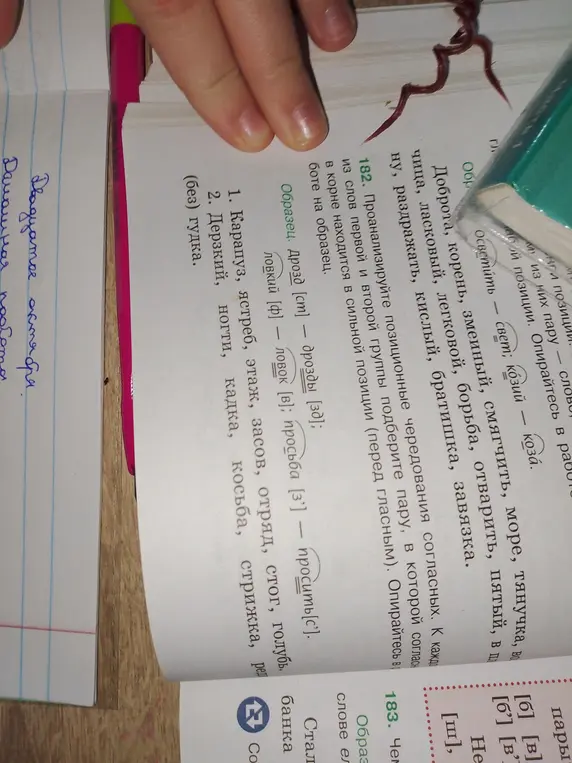 Двадцатое октября.
Домашняя работа
осветить — свет; козий — коза.
Доброта, корень, змеиный, смягчить, море, тянучка,
чица, ласковый, легковой, борьба, отварить, пятый, в
ну, раздражать, кислый, братишка, завязка.
182. Проанализируйте позиционные чередования согласных. К
из слов первой и второй группы подберите пару, в которой
в корне находится в сильной позиции (перед гласным). Опирайтесь в
боте на образец.
Образец. Дрозд [ст] — дрозды [зд];
ловкий [ф] — ловок [в]; просьба [з’] — просить[с’].
1. Карапуз, ястреб, этаж, засов, отряд, стог, голубь.
2. Дерзкий, ногти, кадка, косьба, стрижка,
(без) гудка.
183.
Образ
слове ел
Стал
банка
Со
пары
[б] [в]
[б’] [в’
Не
[ш],